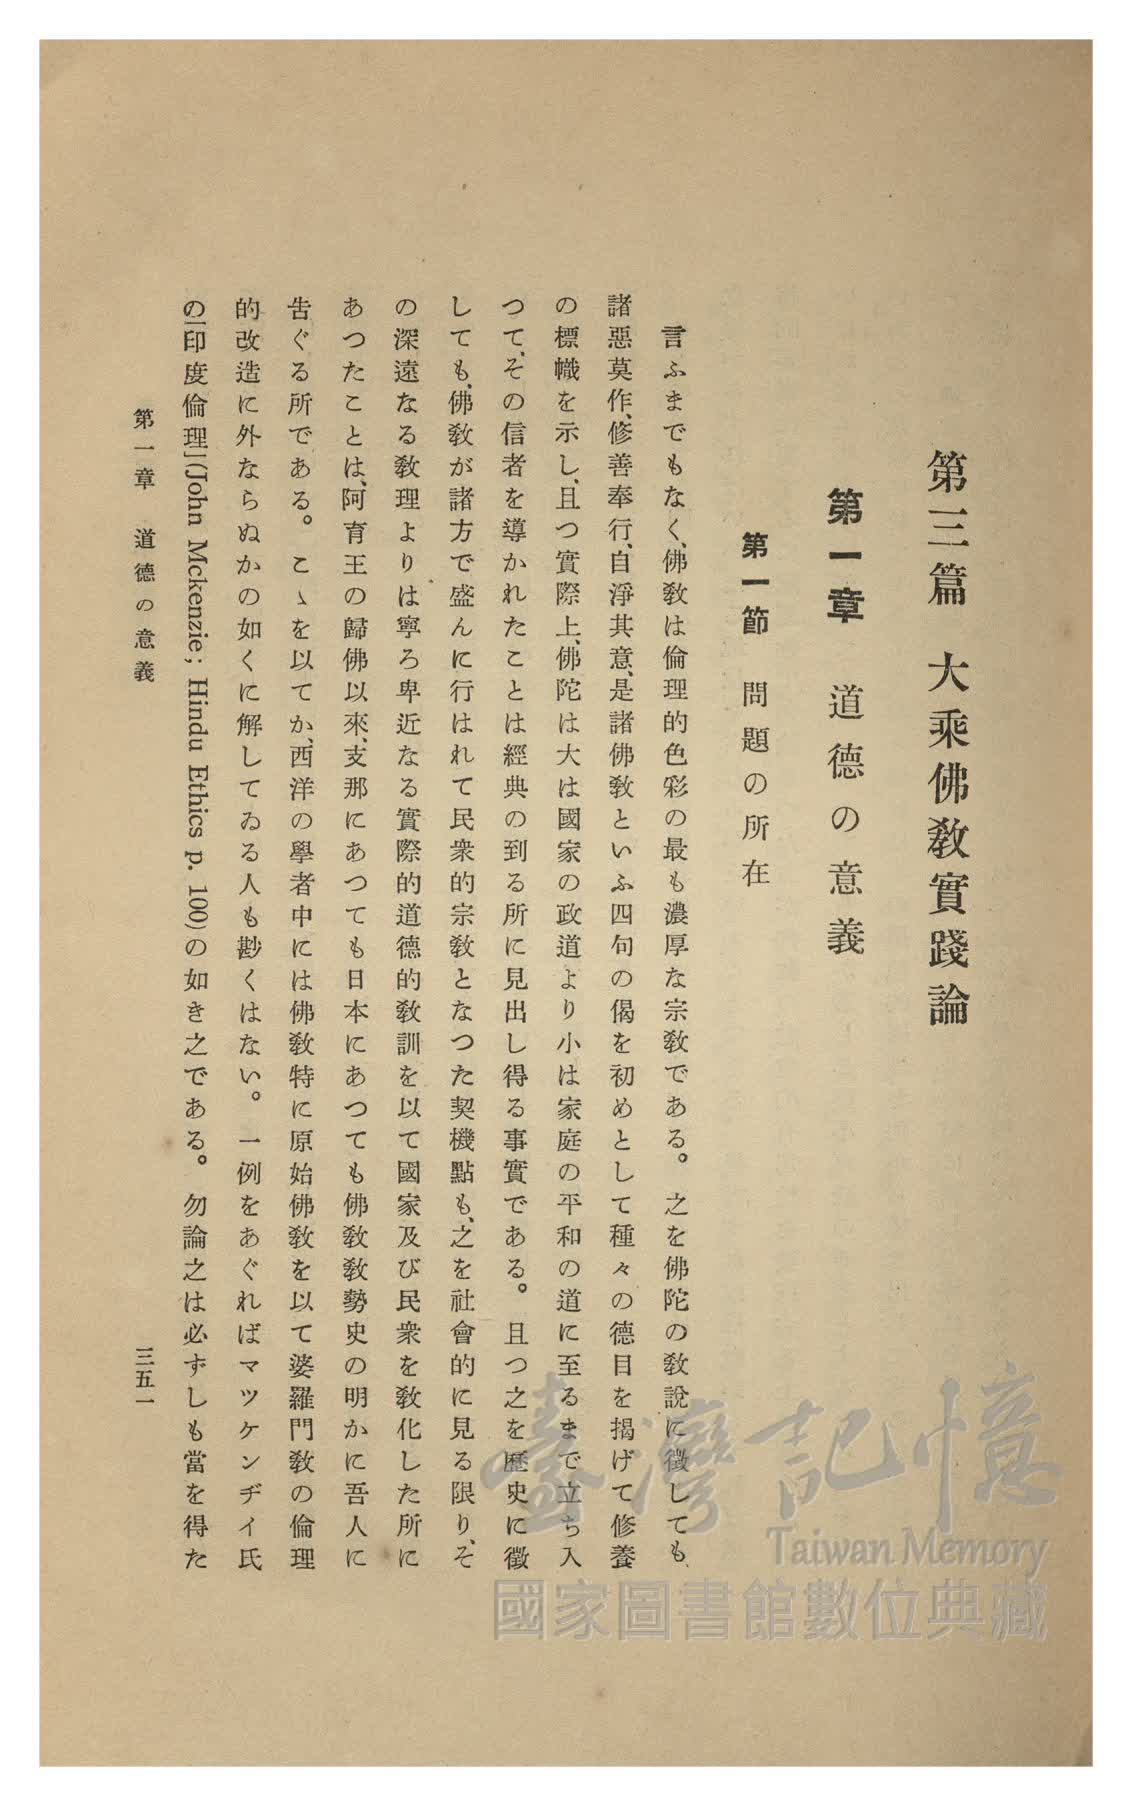 第三篇　大乘佛敎實踐論
第一章　道德の意義
第一節　問題の所在
言ふまでもなく、佛敎は倫理的色彩の最も濃厚な宗敎である。之を佛陀の敎說に徵しても、
諸惡莫作、修善奉行、自淨其意、是諸佛敎といふ四句の偈を初めとして種々の德目を揭げて修養
の標幟を示し、且つ實際上、佛陀は大は國家の政道より小は家庭の平和の道に至るまで立ち入
つて、その信者を導かれたことは經典の到る所に見出し得る事實である。且つ之を歷史に徵
しても、佛敎が諸方で盛んに行はれて民衆的宗敎となつた契機點も、之を社會的に見る限り、そ
の深遠なる敎理よりは寧ろ卑近なる實際的道德的敎訓を以て國家及び民衆を敎化した所に
あつたことは、阿育王の歸佛以來、支那にあつても日本にあつても佛敎敎勢史の明かに吾人に
吿ぐる所である。こゝを以てか、西洋の學者中には佛敎特に原始佛敎を以て婆羅門敎の倫理
的改造に外ならぬかの如くに解してゐる人も尠くはない。一例をあぐればマツケンヂイ氏
の「印度倫理」(John Mckenzie; Hindu Ethics p. 100)の如き之である。勿論之は必ずしも當を得た
第一章　道德の意義
三五一
臺灣記憶
Taiwan Memory
國家圖書館數位典藏